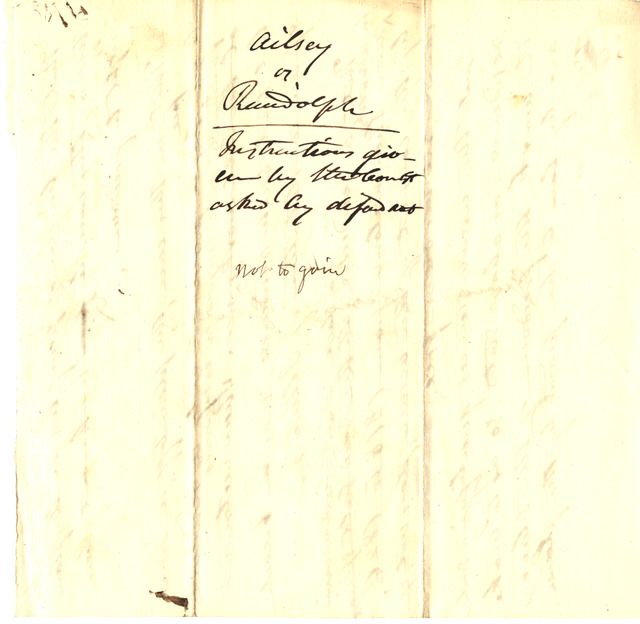 Ailsey
vs
Randolph
Instructions giv-
en by the Court
asked by defendant
not to go in